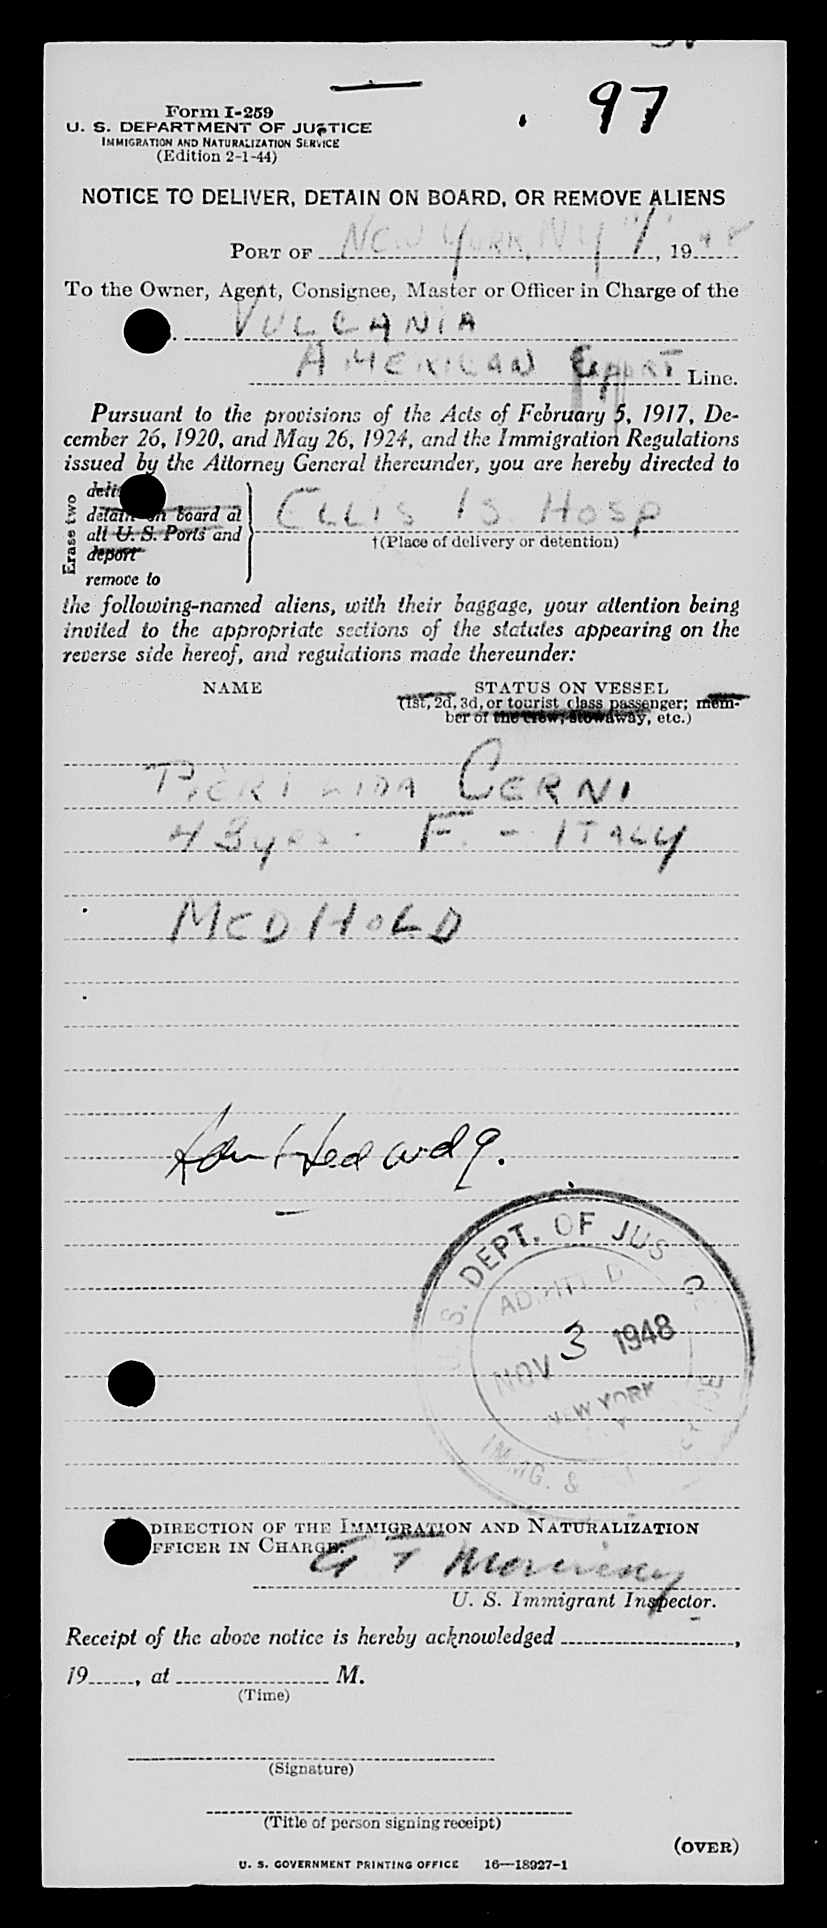 97
Form I-259
U. S. DEPARTMENT OF JUSTICE
IMMIGRATION AND NATURALIZATION SERVICE
(Edition 2-1-44)
NOTICE TO DELIVER, DETAIN ON BOARD, OR REMOVE ALIENS
PORT OF NEW YORK, NY 19 48
To the Owner, Agent, Consignee, Master or Officer in Charge of the
VULCANIA
AMERICAN EXPORT Line.
Pursuant to the provisions of the Acts of February 5, 1917, De-
cember 26, 1920, and May 26, 1924, and the Immigration Regulations
issued by the Attorney General thereunder, you are hereby directed to
Erase two
detain on board at
all U. S. Ports and
deport
remove to
ELLIS IS. HOSP
†(Place of delivery or detention)
the following-named aliens, with their baggage, your attention being
invited to the appropriate sections of the statutes appearing on the
reverse side hereof, and regulations made thereunder:
NAME STATUS ON VESSEL
(1st, 2d, 3d, or tourist class passenger; mem-
ber of the crew, stowaway, etc.)
CERNI
43 yrs. F. - ITALY
MED HOLD
U. S. DEPT. OF JUSTICE
ADMITTED
NOV 3 1948
NEW YORK
IMMG. &
DIRECTION OF THE IMMIGRATION AND NATURALIZATION
OFFICER IN CHARGE:
G T
U. S. Immigrant Inspector.
Receipt of the above notice is hereby acknowledged ,
19 , at M.
(Time)
(Signature)
(Title of person signing receipt)
(OVER)
U. S. GOVERNMENT PRINTING OFFICE 16—18927-1